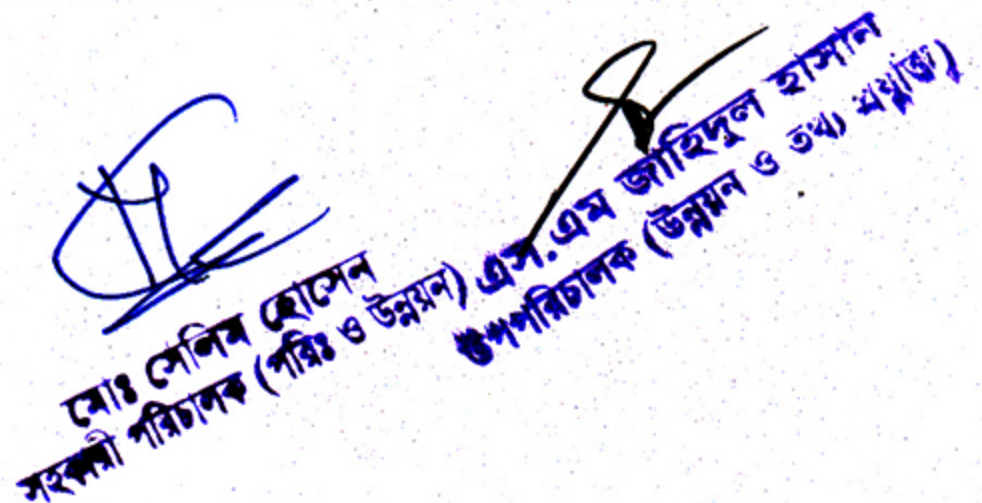 মোঃ সেলিম হোসেন
সহকারী পরিচালক (পরিঃ ও উন্নয়ন)
এস.এম জাহিদুল হাসান
উপপরিচালক (উন্নয়ন ও তথ্য প্রযুক্তি)